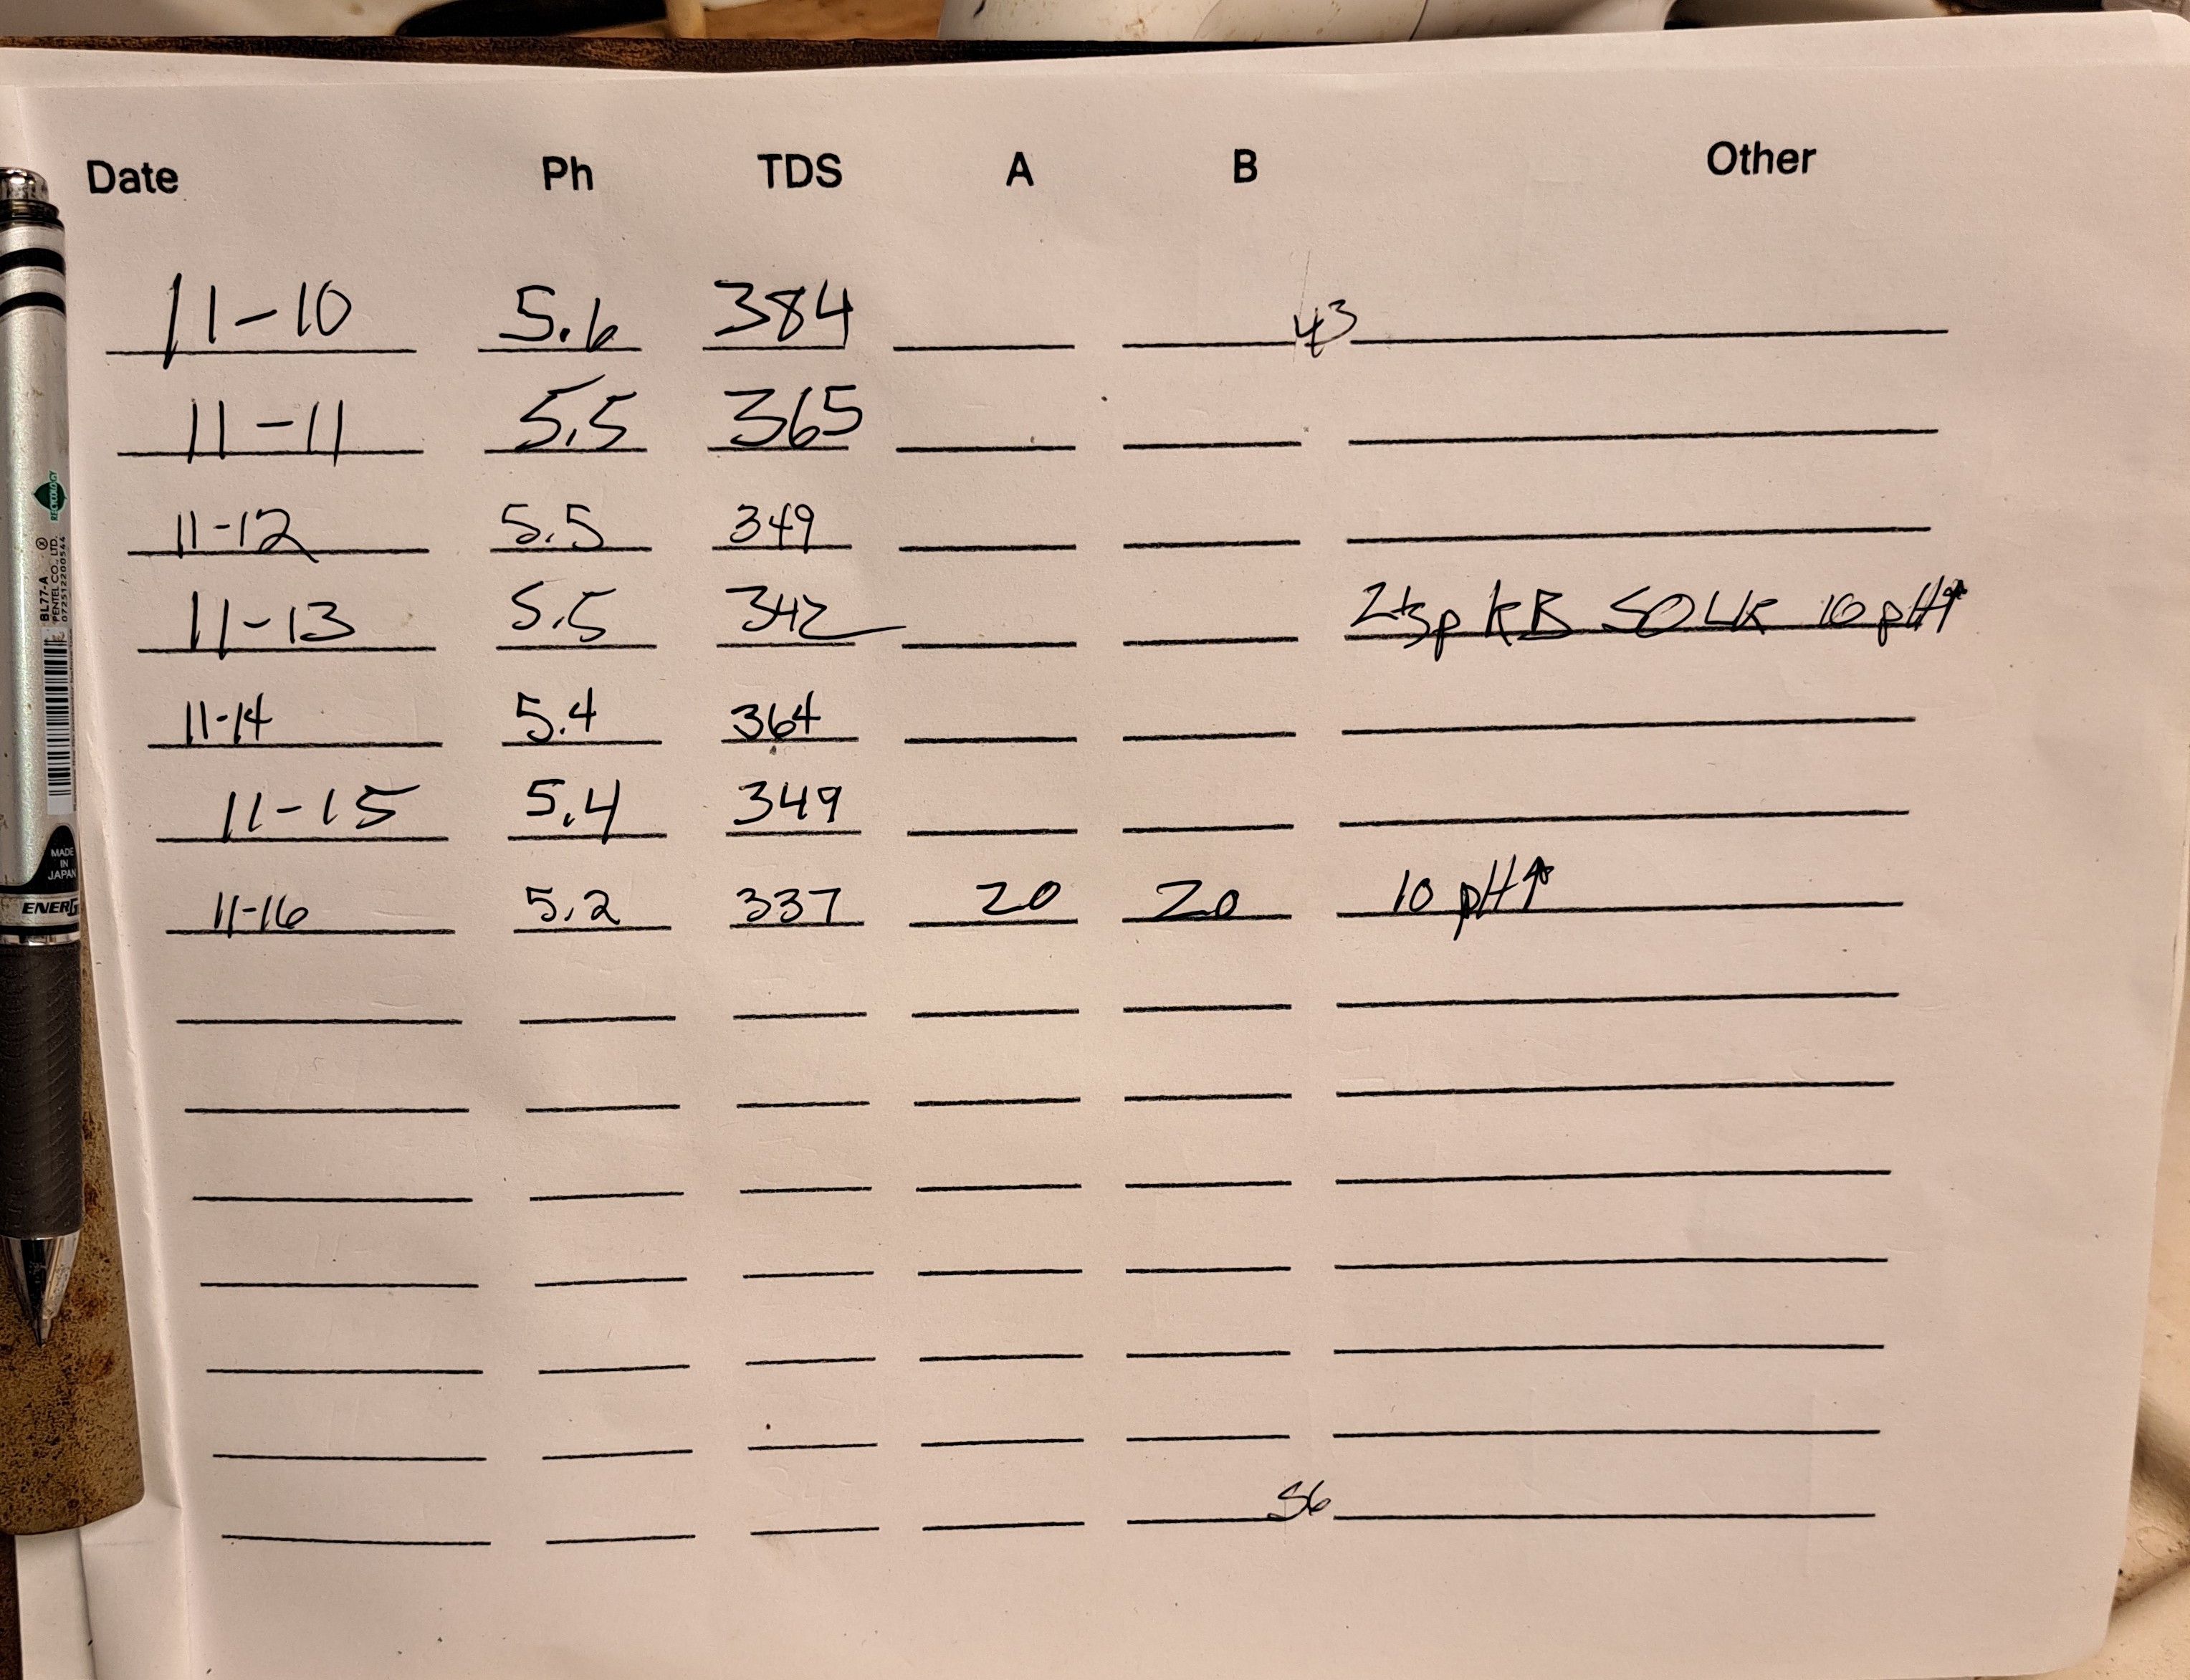 Date Ph TDS A B Other
11-10 5.6 384 43
11-11 5.5 365
11-12 5.5 349
11-13 5.5 342 2tsp KB 50 LK 10 pH↑
11-14 5.4 364
11-15 5.4 349
11-16 5.2 337 20 20 10 pH↑
56
RECYCOLOGY
BL77-A
PENTEL CO., LTD.
072512200544
MADE
IN
JAPAN
ENERG